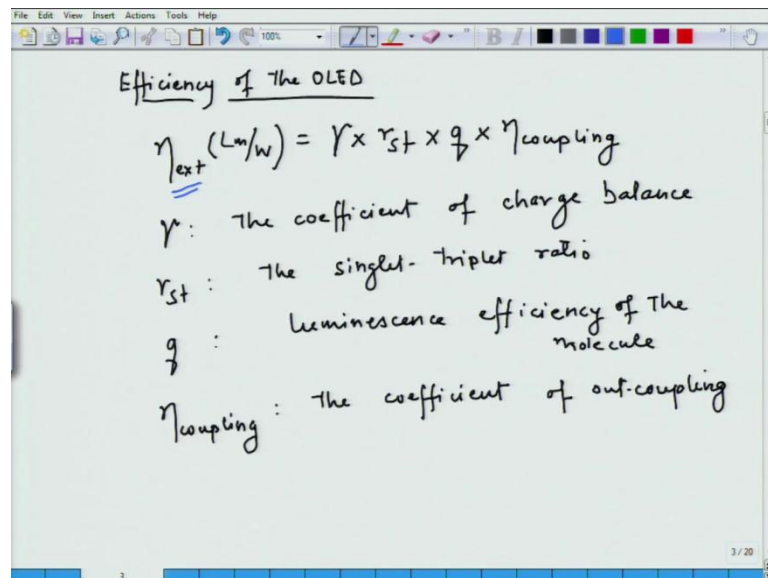 File Edit View Insert Actions Tools Help
100%
B I
Efficiency of The OLED
ηext (Lm/W) = γ × rst × q × ηcoupling
γ : The coefficient of charge balance
rst : The singlet-triplet ratio
q : luminescence efficiency of The
molecule
ηcoupling : The coefficient of out-coupling
3 / 20
3